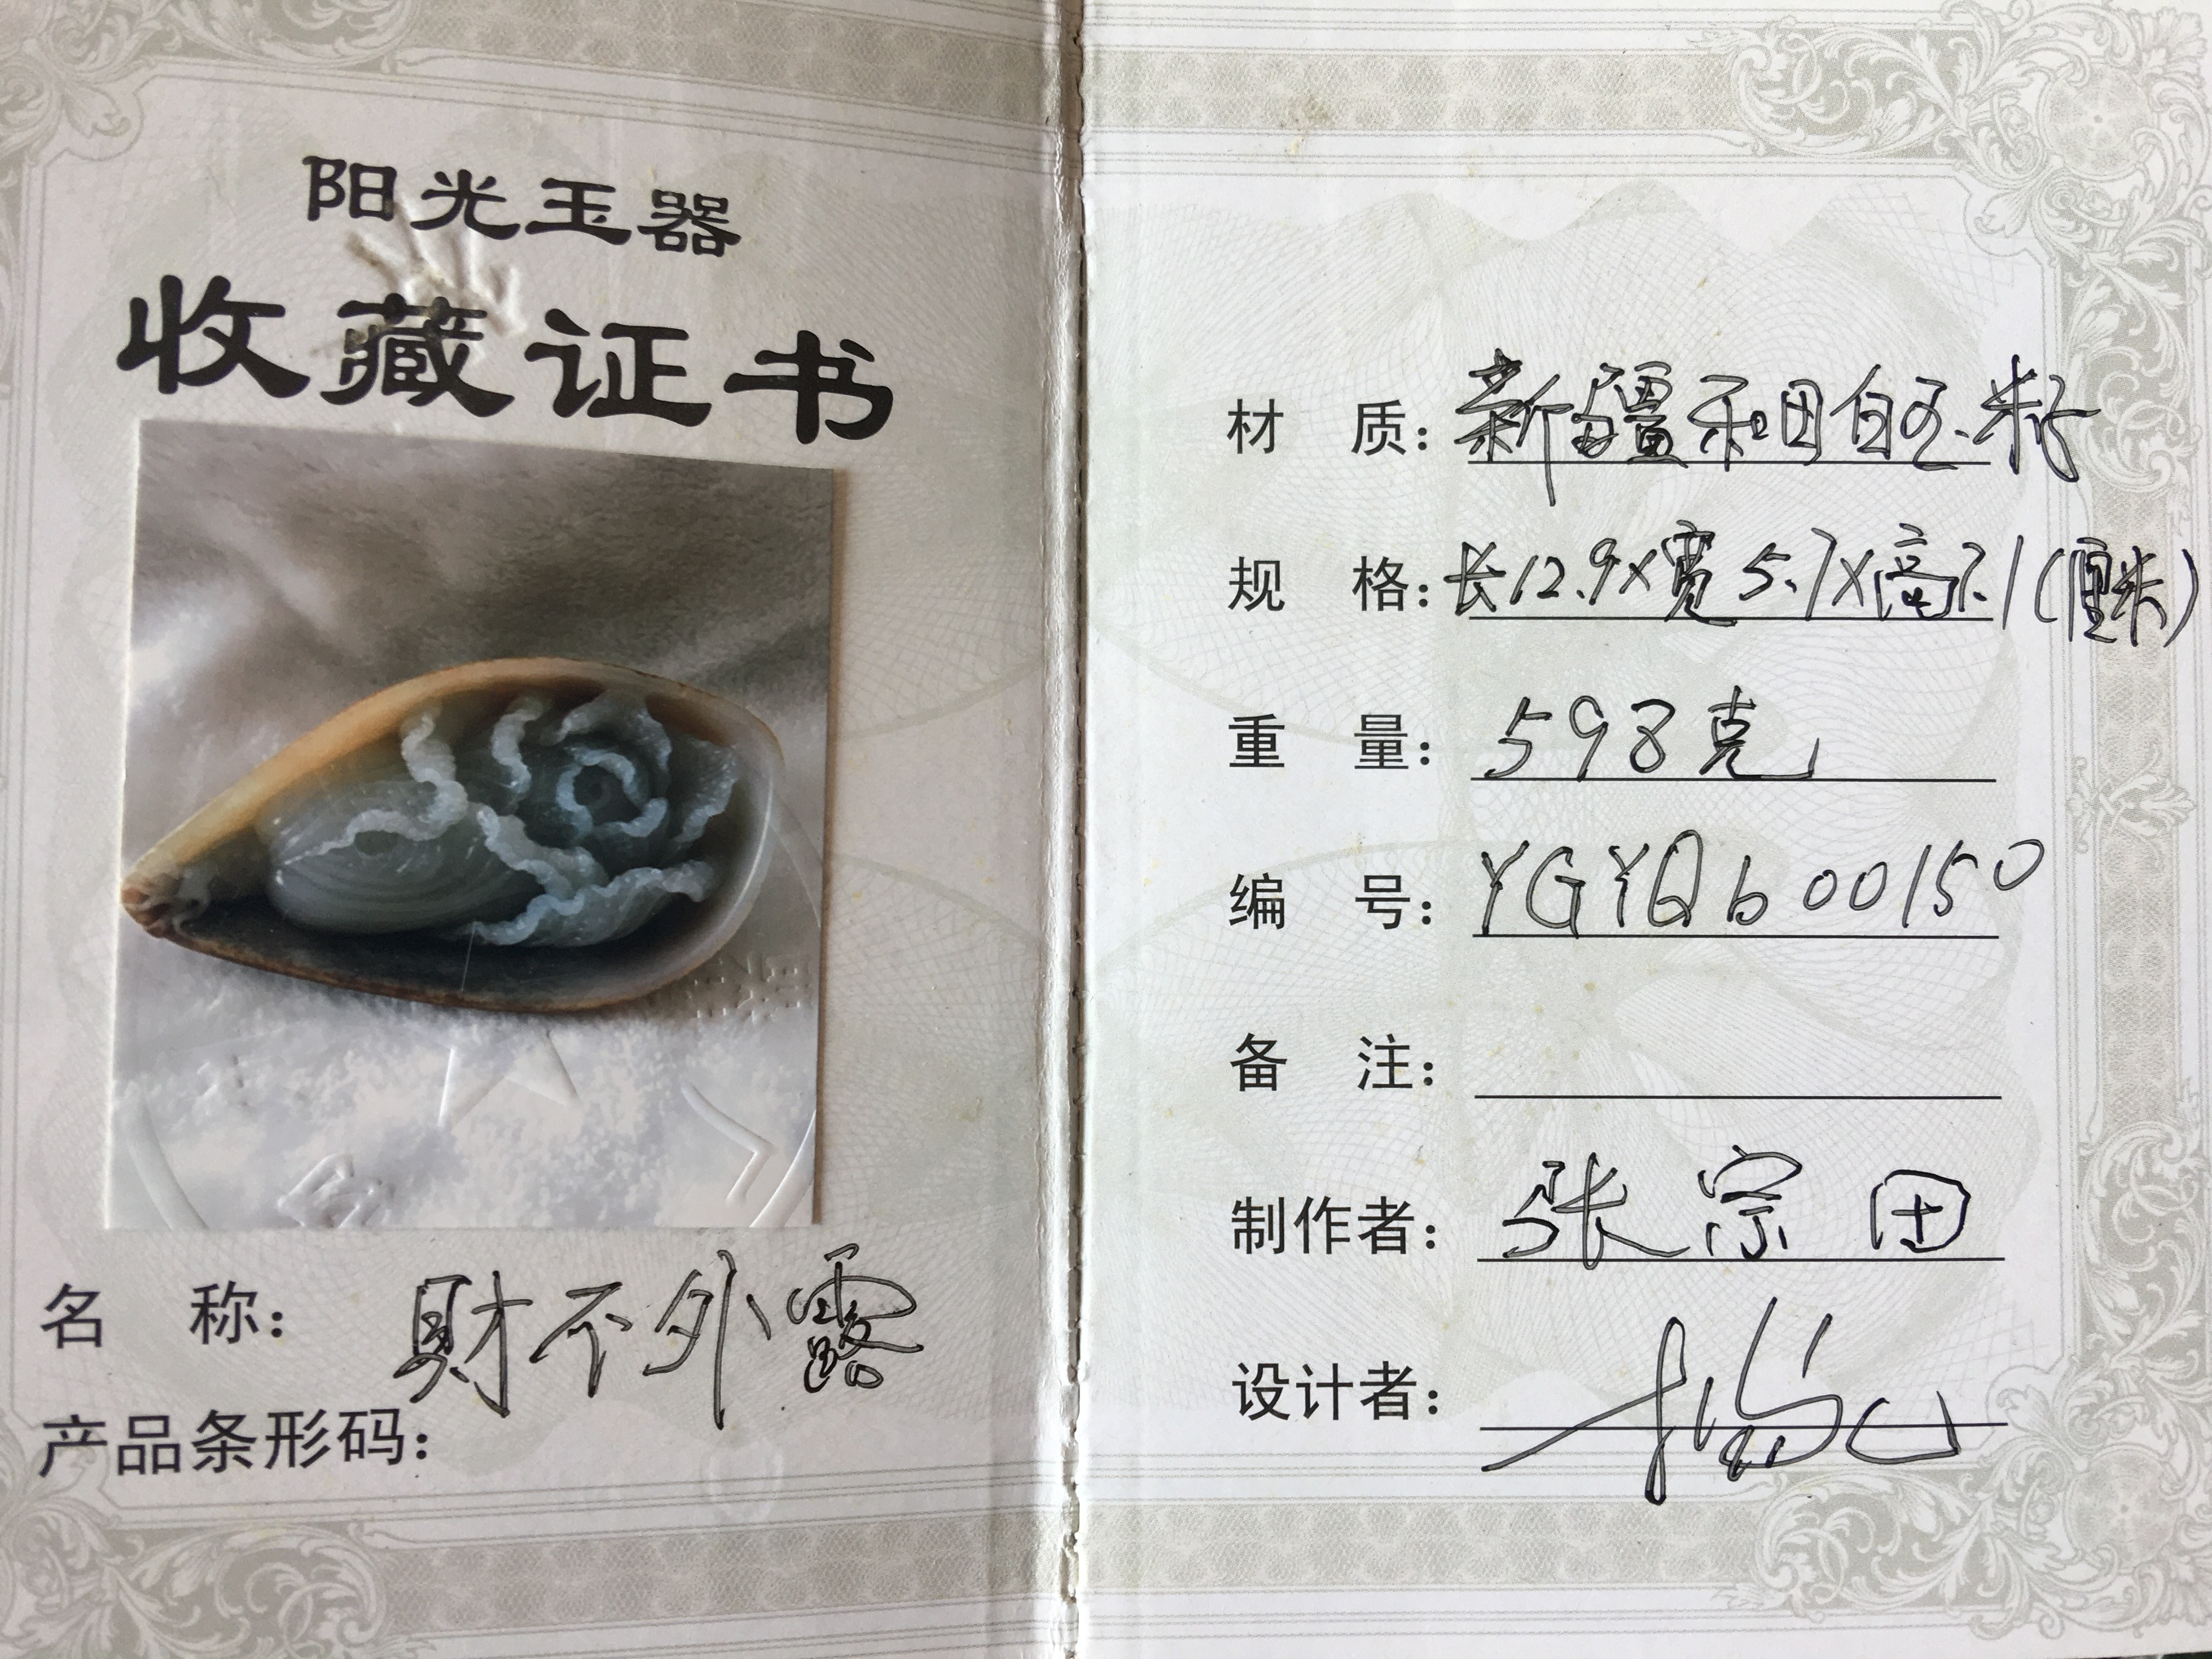 阳光玉器
收藏证书
名 称: 财不外露
产品条形码:
材 质: 新疆和田白玉.籽
规 格: 长12.9×宽5.7×高7.1(厘米)
重 量: 598克
编 号: YGYQb00150
备 注:
制作者: 张宗田
设计者: